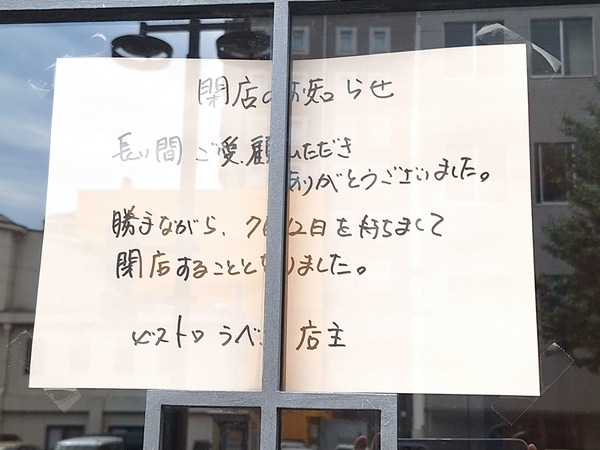 閉店のお知らせ
長い間 ご愛顧いただき
ありがとうございました。
勝手ながら、7月12日を持ちまして
閉店することとなりました。
ビストロ うべ 店主